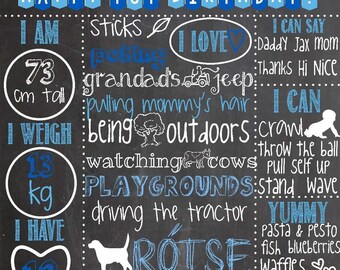 HAPPY 1ST BIRTHDAY
I AM
73
cm tall
I WEIGH
13
kg
I HAVE
sticks
I LOVE
grandad's jeep
pulling mommy's hair
being outdoors
watching cows
PLAYGROUNDS
driving the tractor
RÓTSE
I CAN SAY
Daddy Jax mom
Thanks Hi Nice
I CAN
crawl
throw the ball
pull self up
stand wave
YUMMY
pasta & pesto
fish blueberries
waffles